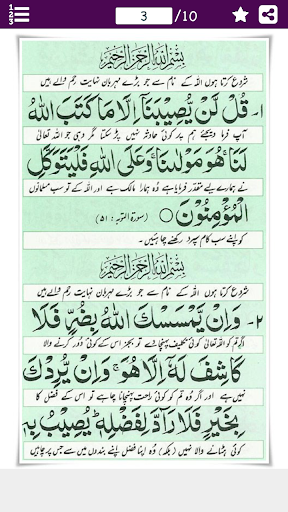 1
2
3
3 /10
بِسْمِ اللهِ الرَّحْمٰنِ الرَّحِيْمِ
شروع کرتا ہوں اللہ کے نام سے جو بڑے مہربان نہایت رحم والے ہیں
۱- قُلْ لَّنْ يُّصِيْبَنَآ اِلَّا مَا كَتَبَ اللهُ
آپ فرما دیجئے ہم پر کوئی حادثہ نہیں پڑ سکتا مگر وہی جو اللہ تعالٰی
لَنَا هُوَ مَوْلٰىنَا وَعَلَى اللهِ فَلْيَتَوَكَّلِ
نے ہمارے لیے مقدر فرمایا ہے وہ ہمارا مالک ہے اور اللہ کے تو سب مسلمانوں
الْمُؤْمِنُوْنَ ○ (سورۃ التوبہ : ۵۱)
کو اپنے سب کام سپرد رکھنے چاہئیں۔
بِسْمِ اللهِ الرَّحْمٰنِ الرَّحِيْمِ
شروع کرتا ہوں اللہ کے نام سے جو بڑے مہربان نہایت رحم والے ہیں
۲- وَاِنْ يَّمْسَسْكَ اللهُ بِضُرٍّ فَلَا
اگر تم کو اللہ تعالٰی کوئی تکلیف پہنچائے تو بجز اس کے کوئی دُور کرنے والا
كَاشِفَ لَهٗٓ اِلَّا هُوَ وَاِنْ يُّرِدْكَ
نہیں ہے اور اگر وہ تم کو کوئی راحت پہنچانا چاہے تو اس کے فضل کا
بِخَيْرٍ فَلَا رَآدَّ لِفَضْلِهٖ يُصِيْبُ بِهٖ
کوئی ہٹانے والا نہیں (بلکہ) وہ اپنا فضل اپنے بندوں میں سے جس پر چاہیں